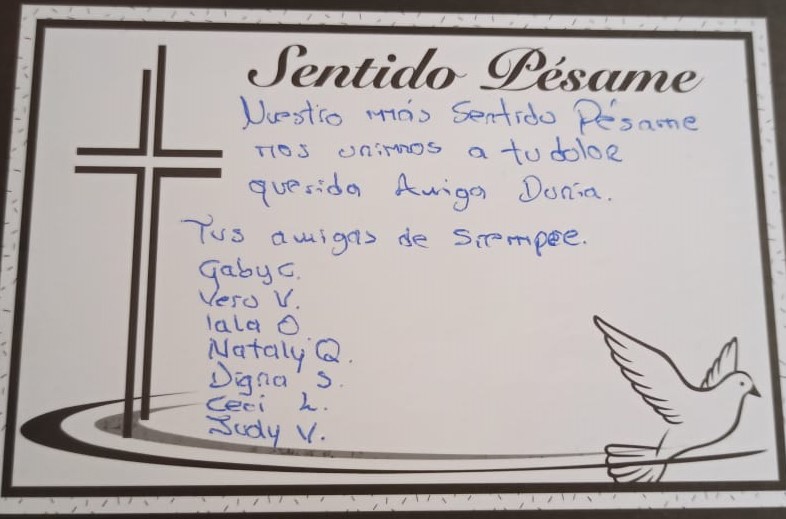 Sentido Pésame
Nuestro más Sentido Pésame
nos unimos a tu dolor
querida Amiga Dunia.
Tus amigas de siempre.
Gaby C.
Vero V.
lala O
Nataly Q.
Digna S.
Ceci L.
Judy V.